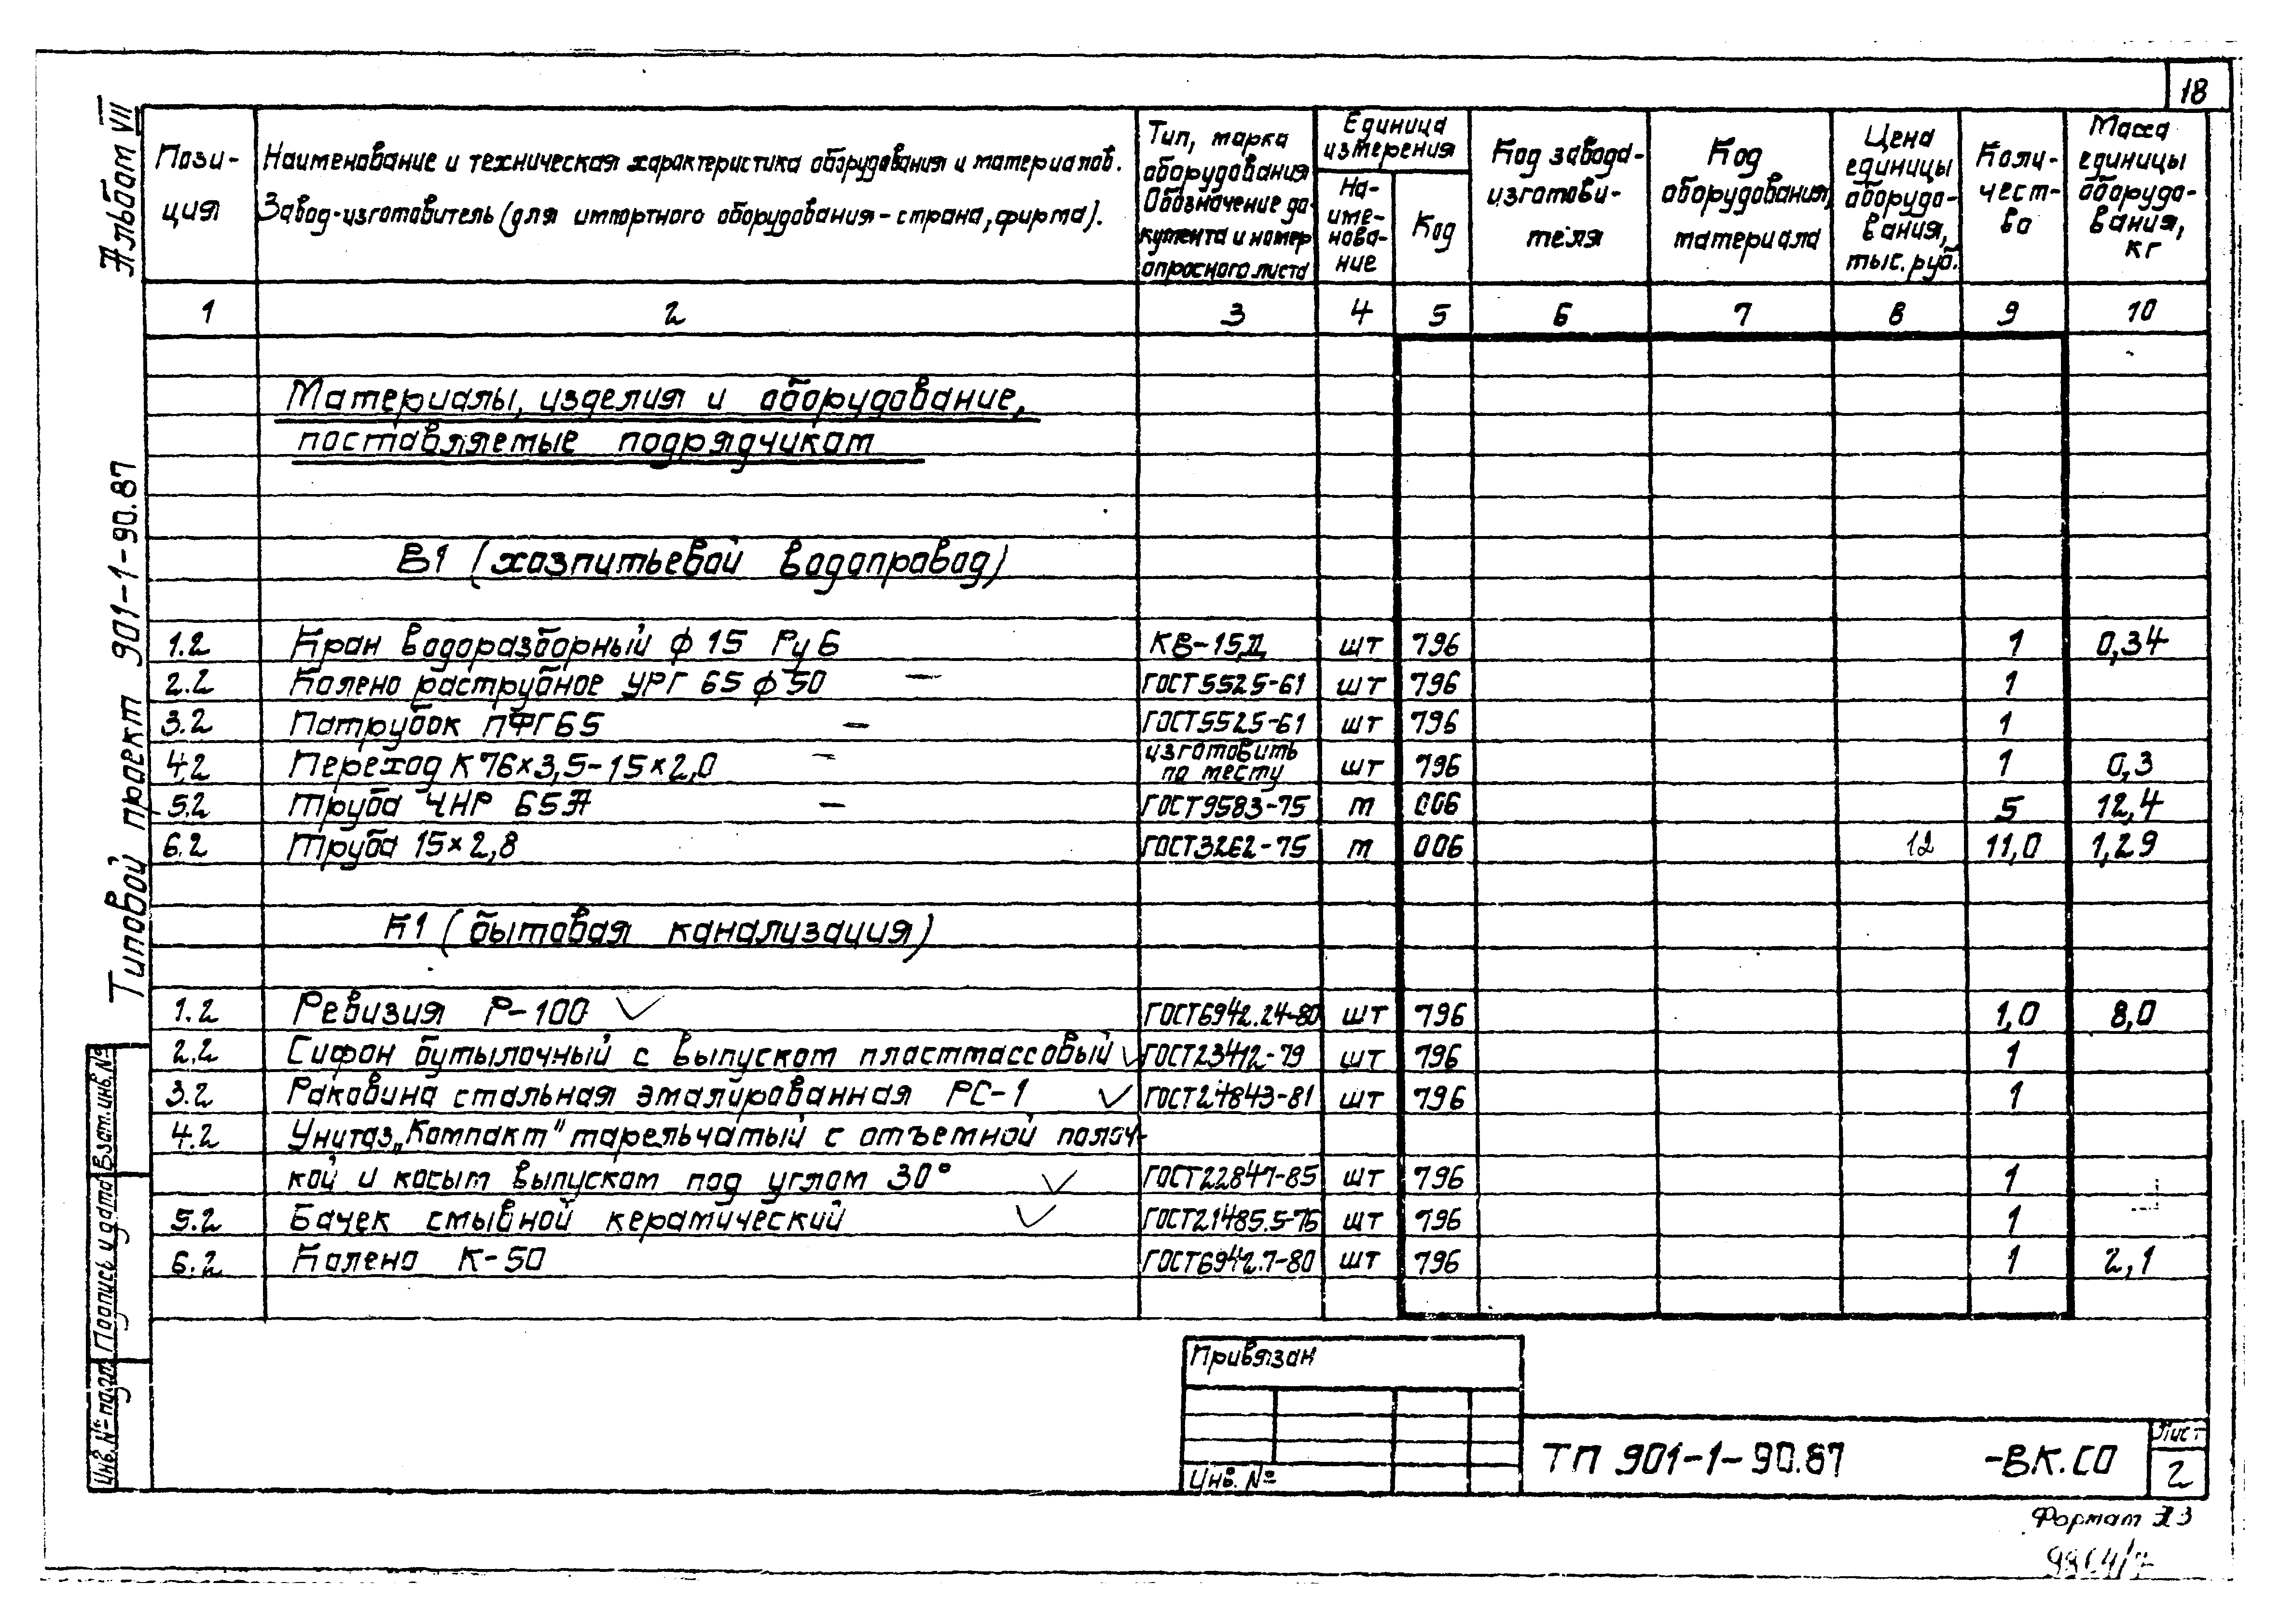 18
Альбом VII
Типовой проект 901-1-90.87
Пози-
ция
Наименование и техническая характеристика оборудования и материалов.
Завод-изготовитель (для импортного оборудования-страна, фирма).
Тип, марка
оборудования
Обозначение до-
кумента и номер
опросного листа
Единица
измерения
На-
име-
нова-
ние
Код
Код завода-
изготови-
теля
Код
оборудования,
материала
Цена
единицы
оборудо-
вания,
тыс. руб.
Коли-
чест-
во
Масса
единицы
оборудо-
вания,
кг
1 2 3 4 5 6 7 8 9 10
Материалы, изделия и оборудование,
поставляемые подрядчиком
В1 (хозпитьевой водопровод)
1.2 Кран водоразборный ф 15 Ру 6 КВ-15Д шт 796 1 0,34
2.2 Колено раструбное УРГ 65 ф 50 – ГОСТ 5525-61 шт 796 1
3.2 Патрубок ПФГ65 – ГОСТ5525-61 шт 796 1
4.2 Переход К 76×3,5-15×2,0 – изготовить по месту шт 796 1 0,3
5.2 Труба ЧНР 65А – ГОСТ9583-75 м 006 5 12,4
6.2 Труба 15×2,8 ГОСТ3262-75 м 006 12 11,0 1,29
К1 (бытовая канализация)
1.2 Ревизия Р-100 ГОСТ6942.24-80 шт 796 1,0 8,0
2.2 Сифон бутылочный с выпуском пластмассовый ГОСТ23412-79 шт 796 1
3.2 Раковина стальная эмалированная РС-1 ГОСТ24843-81 шт 796 1
4.2 Унитаз „Компакт" тарельчатый с отъемной полоч-
кой и косым выпуском под углом 30° ГОСТ22847-85 шт 796 1
5.2 Бачек смывной керамический ГОСТ21485.5-76 шт 796 1
6.2 Колено К-50 ГОСТ6942.7-80 шт 796 1 2,1
Взам. инв. №
Подпись и дата
Инв. № подл.
Привязан
Инв. №
ТП 901-1-90.87 -ВК.СО
Лист
2
Формат А3